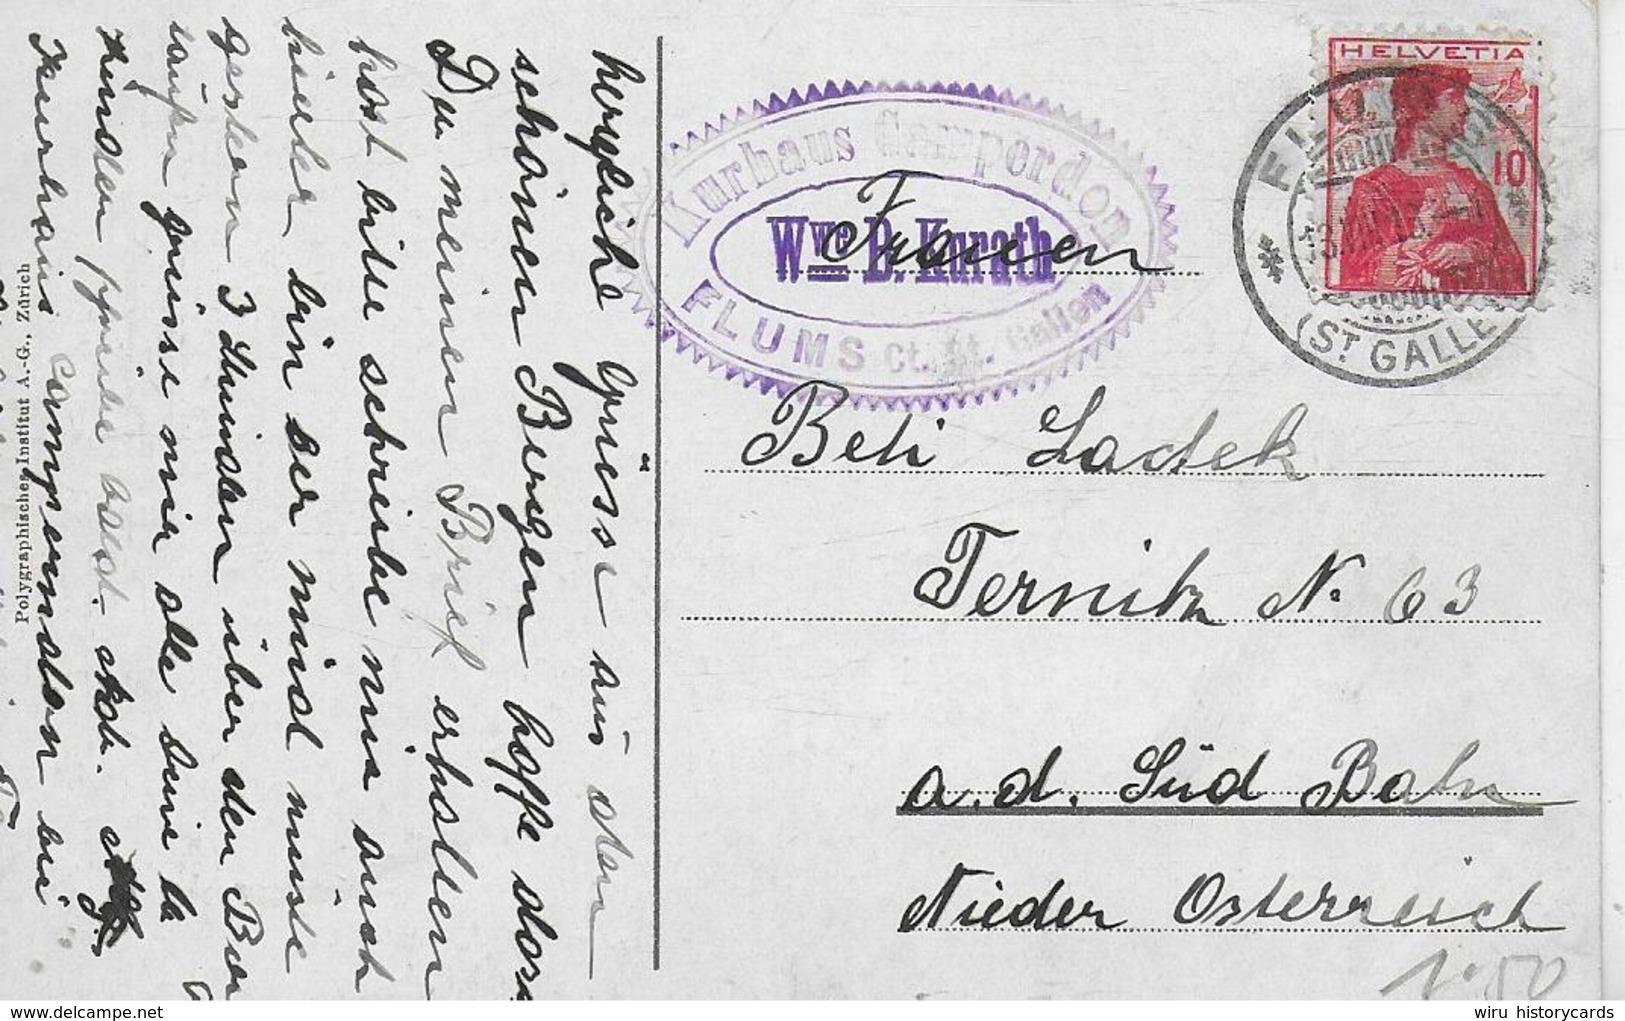 herzliche Grüsse aus den
schönen Bergen hoffe dass
Du meinen Brief erhalten
hast bitte schreibe mir auch
hier bin ser müd müste
gestern 3 Stunden über den
laufen grüsse mir alle deine
Kindlen schreibe bald
Kurhaus Campermdon bei
Polygraphisches Institut A.-G., Zürich
Kurhaus Camperdon
Wwe B. Kurath
FLUMS Ct. St. Gallen
HELVETIA
10
FLUMS
(ST GALLE
Frauen
Beti Ladek
Ternitz No 63
a.d. Süd Bahn
Nieder Osterreich
1.50
wiru historycards